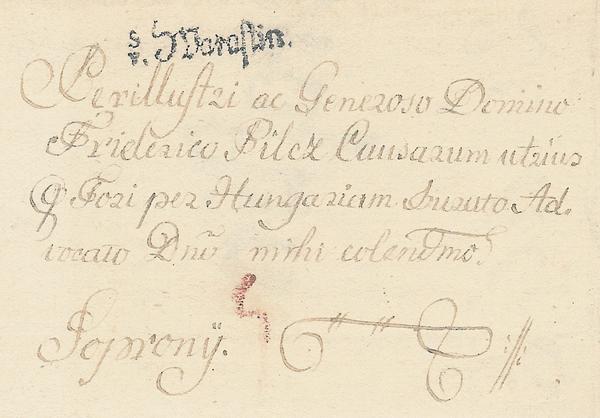 v. Varasdin.
Perillustri ac Generoso Domino
Friderico Pilcz Causarum utrius
Fori per Hungariam Jurato Ad.
vocato Dnō mihi colendmo.
Soprony.